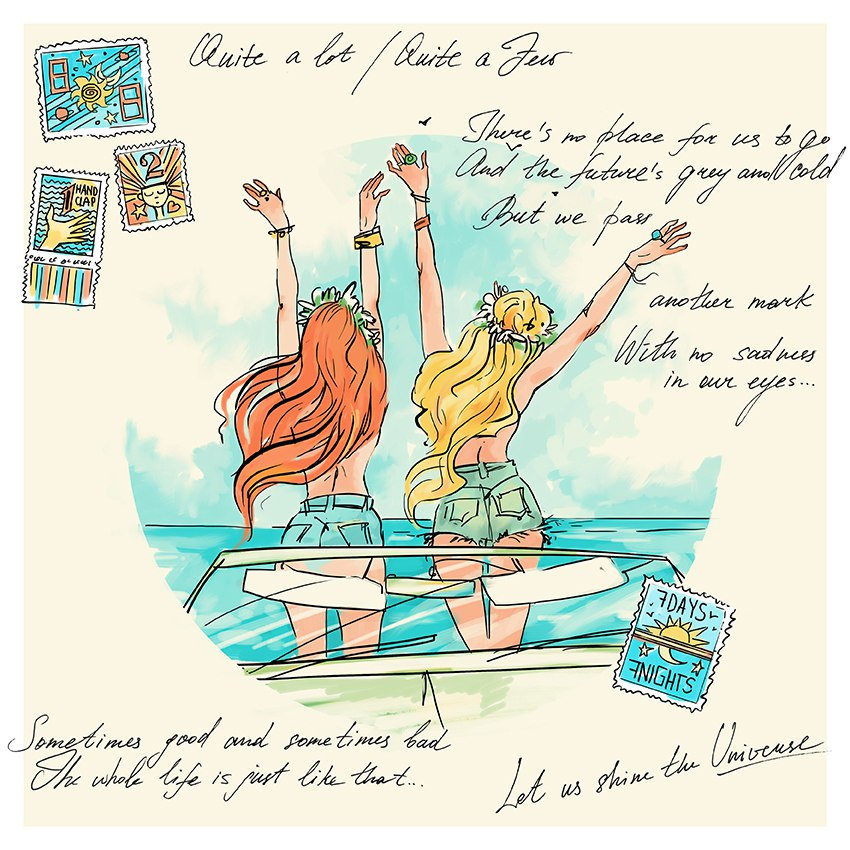 Quite a lot / Quite a Few
There's no place for us to go
And the future's grey and cold
But we pass
another mark
With no sadness
in our eyes...
8
8
2
HAND
CLAP
7DAYS
7NIGHTS
Sometimes good and sometimes bad
The whole life is just like that...
Let us shine the Universe